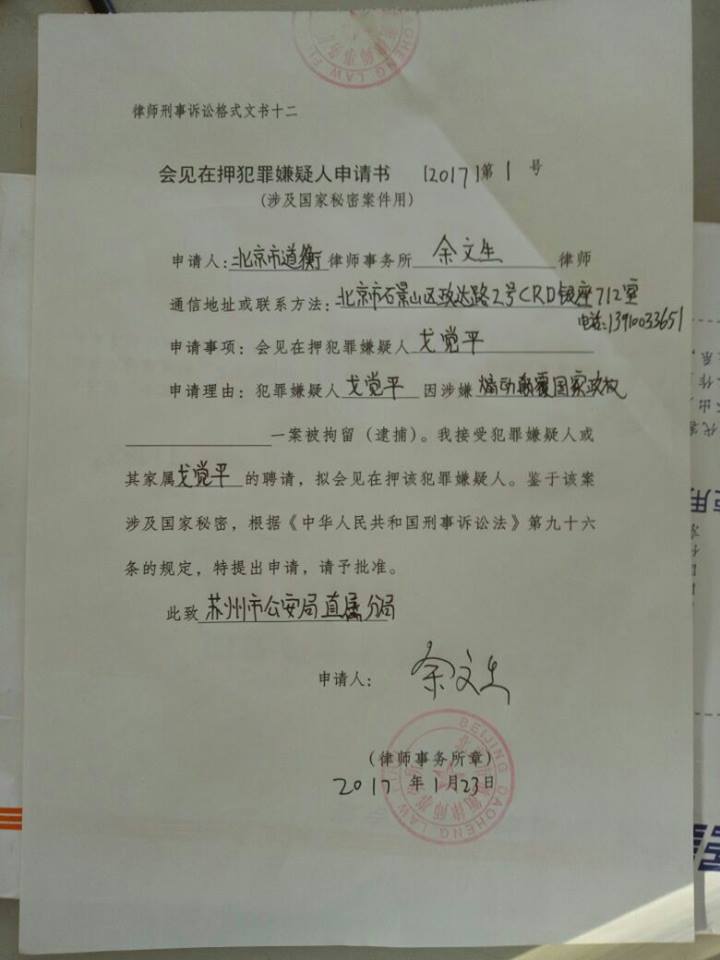 律师刑事诉讼格式文书十二
会见在押犯罪嫌疑人申请书 [2017]第1号
(涉及国家秘密案件用)
申请人:北京市道衡律师事务所 余文生 律师
通信地址或联系方法:北京市石景山区政达路2号CRD银座712室
电话:13910033651
申请事项:会见在押犯罪嫌疑人 戈觉平
申请理由:犯罪嫌疑人 戈觉平 因涉嫌 煽动颠覆国家政权
一案被拘留(逮捕)。我接受犯罪嫌疑人或
其家属戈觉平的聘请,拟会见在押该犯罪嫌疑人。鉴于该案
涉及国家秘密,根据《中华人民共和国刑事诉讼法》第九十六
条的规定,特提出申请,请予批准。
此致 苏州市公安局直属分局
申请人: 余文生
(律师事务所章)
2017年1月23日
BEIJING DAOHENG LAW